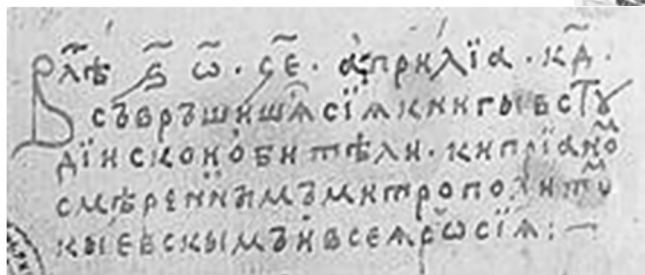 В лѣ҃ ҂ѕ҃ ѡ҃ · ҁе҃ · априлїа · кд҃ ·
съвръшишѧ сїѧ книгы в стꙋ
дїискои обители · кипрїаноⷨ
смѣреннымъ митрополитоⷨ
кыевскымъ и всеѧ рѡсїѧ :—